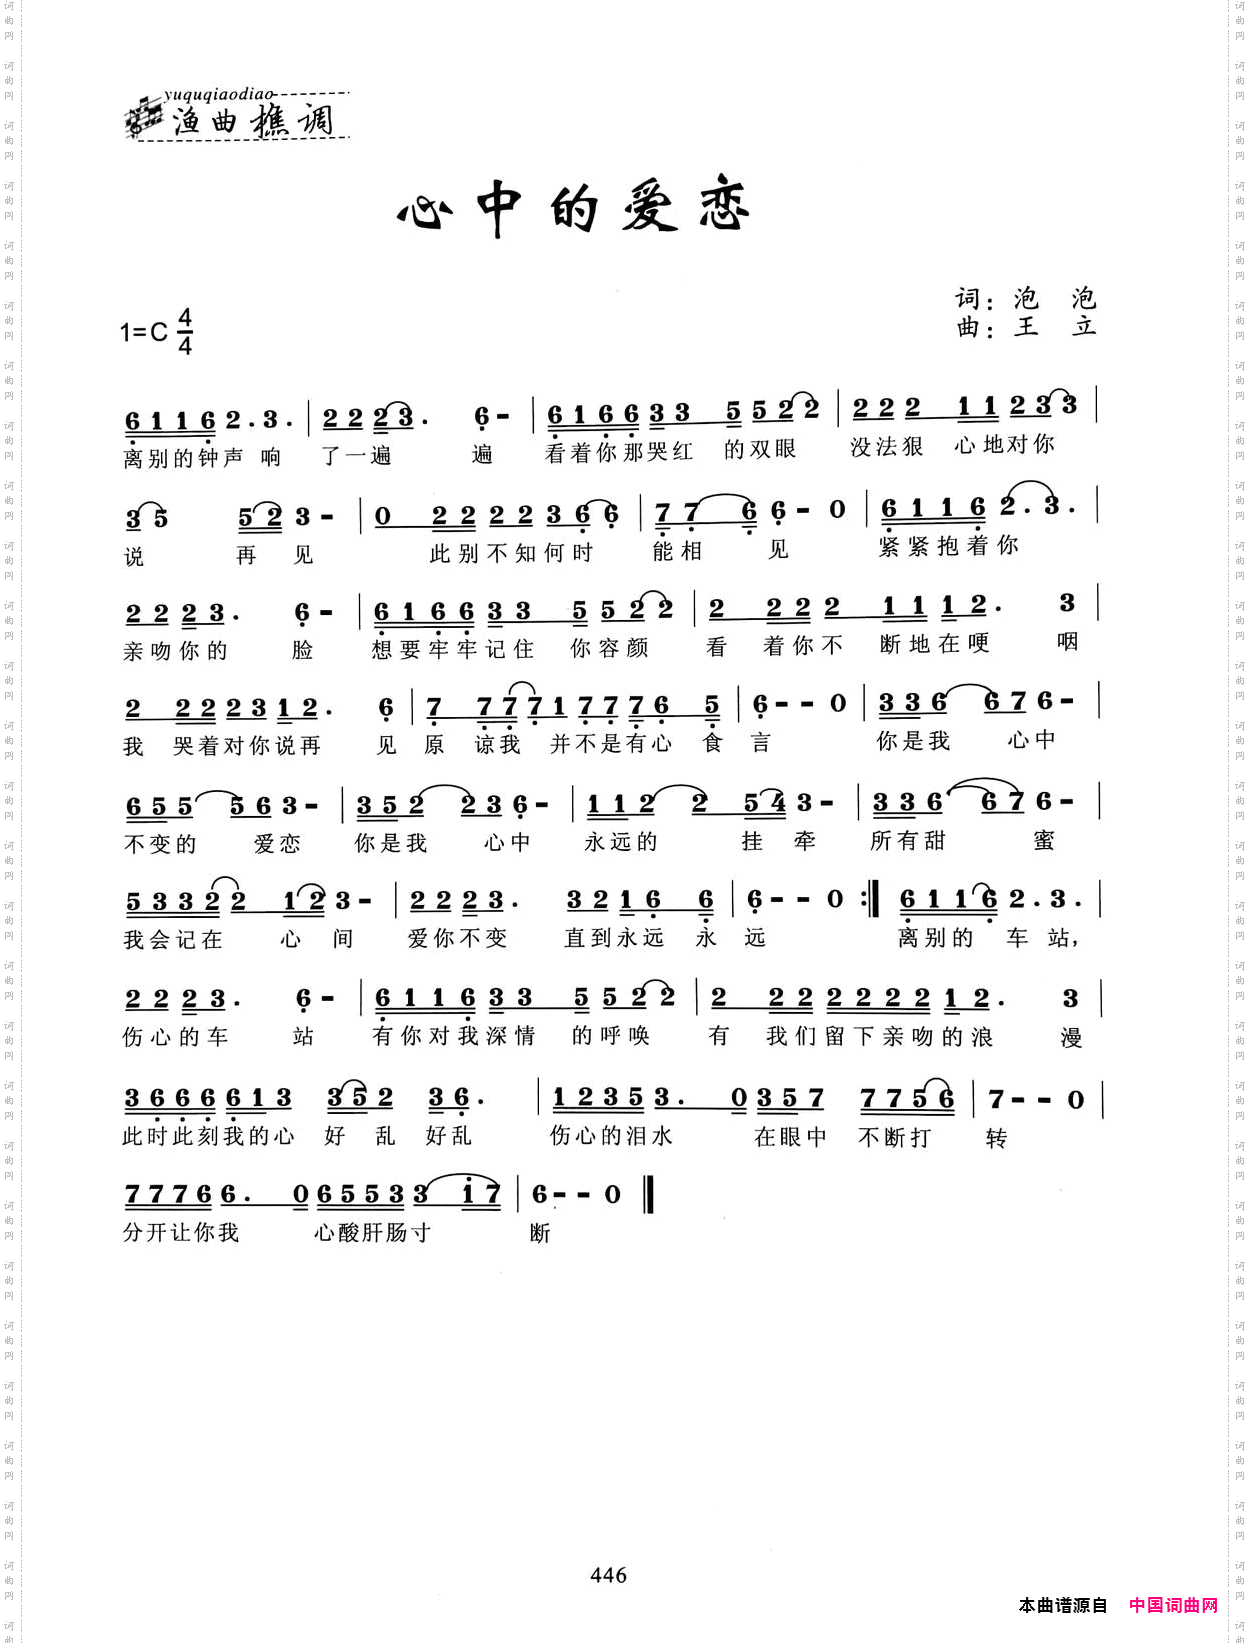 yuquqiaodiao
渔曲樵调
心中的爱恋
词：泡 泡
1=C 4/4
曲：王 立
6 1 1 6 2. 3. | 2 2 2 3. 6 - | 6 1 6 6 3 3 5 5 2 2 | 2 2 2 1 1 2 3 3 |
离别的钟声 响 了一遍 遍 看着你那哭红 的双眼 没法狠 心地对你
3 5 5 2 3 - | 0 2 2 2 2 3 6 6 | 7 7 6 6 - 0 | 6 1 1 6 2. 3. |
说 再 见 此别不知何时 能相 见 紧紧抱着你
2 2 2 3. 6 - | 6 1 6 6 3 3 5 5 2 2 | 2 2 2 2 1 1 1 2. 3 |
亲吻你的 脸 想要牢牢记住 你容颜 看 着你不 断地在哽 咽
2 2 2 2 3 1 2. 6 | 7 7 7 7 1 7 7 7 6 5 | 6 - - 0 | 3 3 6 6 7 6 - |
我 哭着对你说再 见 原 谅我 并不是有心 食 言 你是我 心中
6 5 5 5 6 3 - | 3 5 2 2 3 6 - | 1 1 2 2 5 4 3 - | 3 3 6 6 7 6 - |
不变的 爱恋 你是我 心中 永远的 挂 牵 所有甜 蜜
5 3 3 2 2 1 2 3 - | 2 2 2 3. 3 2 1 6 6 | 6 - - 0 :| 6 1 1 6 2. 3. |
我会记在 心 间 爱你不变 直到永远 永 远 离别的 车 站，
2 2 2 3. 6 - | 6 1 1 6 3 3 5 5 2 2 | 2 2 2 2 2 2 2 1 2. 3 |
伤心的车 站 有你对我深情 的呼唤 有 我们留下亲吻的浪 漫
3 6 6 6 6 1 3 3 5 2 3 6. | 1 2 3 5 3. 0 3 5 7 7 7 5 6 | 7 - - 0 |
此时此刻我的心 好 乱 好乱 伤心的泪水 在眼中 不断打 转
7 7 7 6 6. 0 6 5 5 3 3 i 7 | 6 - - 0 ‖
分开让你我 心酸肝肠寸 断
446
本曲谱源自 中国词曲网